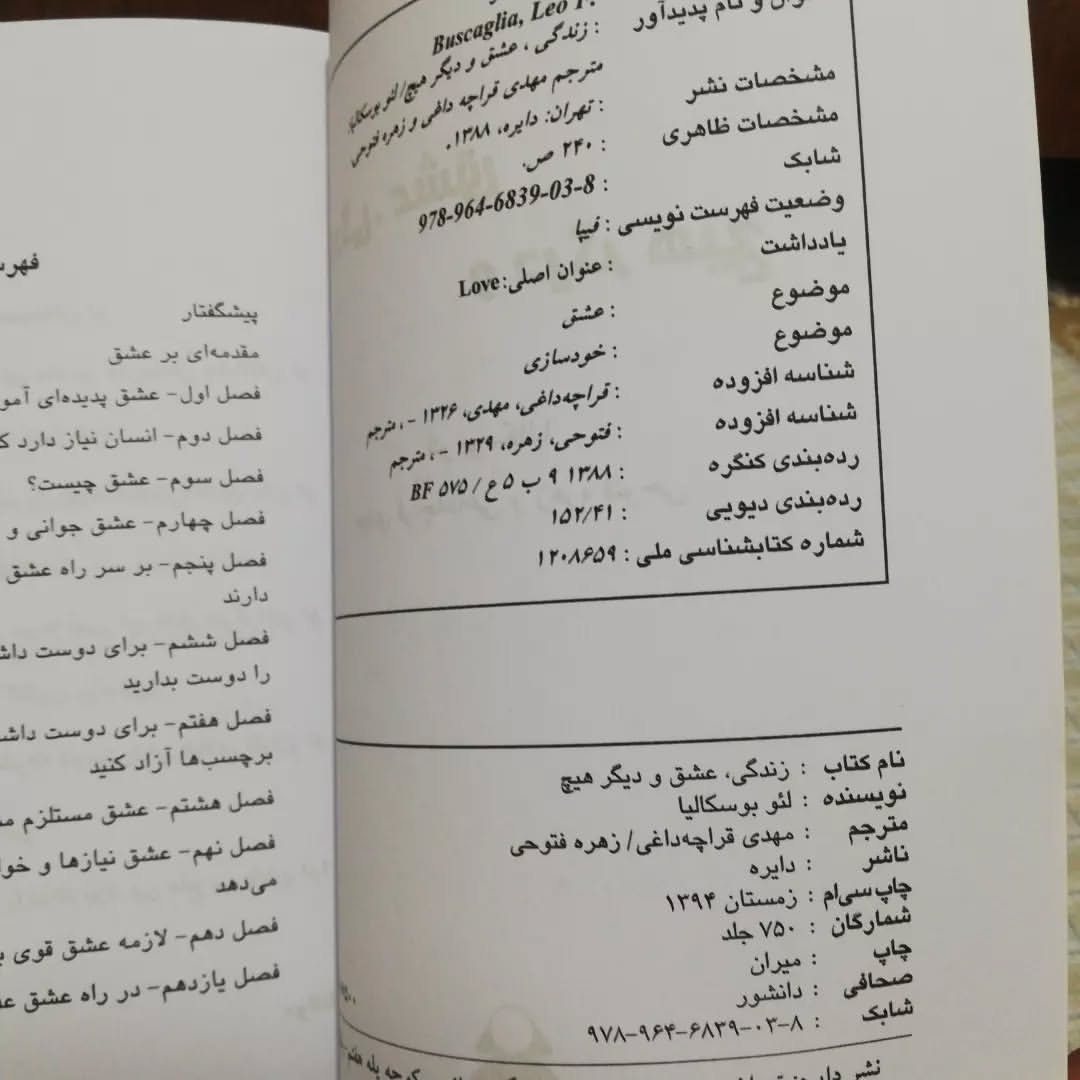 عنوان و نام پدیدآور
Buscaglia, Leo F.
: زندگی ، عشق و دیگر هیچ/ لئو بوسکالیا؛
مترجم مهدی قراچه داغی و زهره فتوحی
مشخصات نشر : تهران: دایره، ۱۳۸۸.
مشخصات ظاهری : ۲۴۰ ص.
شابک : 978-964-6839-03-8
وضعیت فهرست نویسی : فیپا
یادداشت : عنوان اصلی: Love
موضوع : عشق
موضوع : خودسازی
شناسه افزوده : قراچه‌داغی، مهدی، ۱۳۲۶ - ، مترجم
شناسه افزوده : فتوحی، زهره، ۱۳۲۹ - ، مترجم
رده‌بندی کنگره : ۱۳۸۸ ۹ ب ۵ ع / ۵۷۵ BF
رده‌بندی دیویی : ۱۵۲/۴۱
شماره کتابشناسی ملی : ۱۲۰۸۶۵۹
نام کتاب : زندگی، عشق و دیگر هیچ
نویسنده : لئو بوسکالیا
مترجم : مهدی قراچه‌داغی/ زهره فتوحی
ناشر : دایره
چاپ سی‌ام : زمستان ۱۳۹۴
شمارگان : ۷۵۰ جلد
چاپ : میران
صحافی : دانشور
شابک : ۹۷۸-۹۶۴-۶۸۳۹-۰۳-۸
نشر
پیشگفتار
مقدمه‌ای بر عشق
فصل اول- عشق پدیده‌ای
فصل دوم- انسان نیاز دارد
فصل سوم- عشق چیست؟
فصل چهارم- عشق جوانی و
فصل پنجم- بر سر راه عشق
دارند
فصل ششم- برای دوست
را دوست بدارید
فصل هفتم- برای دوست
برچسب‌ها آزاد کنید
فصل هشتم- عشق مستلزم
فصل نهم- عشق نیازها و
می‌دهد
فصل دهم- لازمه عشق قوی
فصل یازدهم- در راه عشق